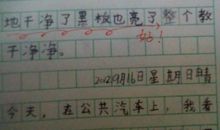 地干净了黑板也亮了整个教
好!
干净净。
2012年9月16日星期日月晴
今天，在公共汽车上，我看